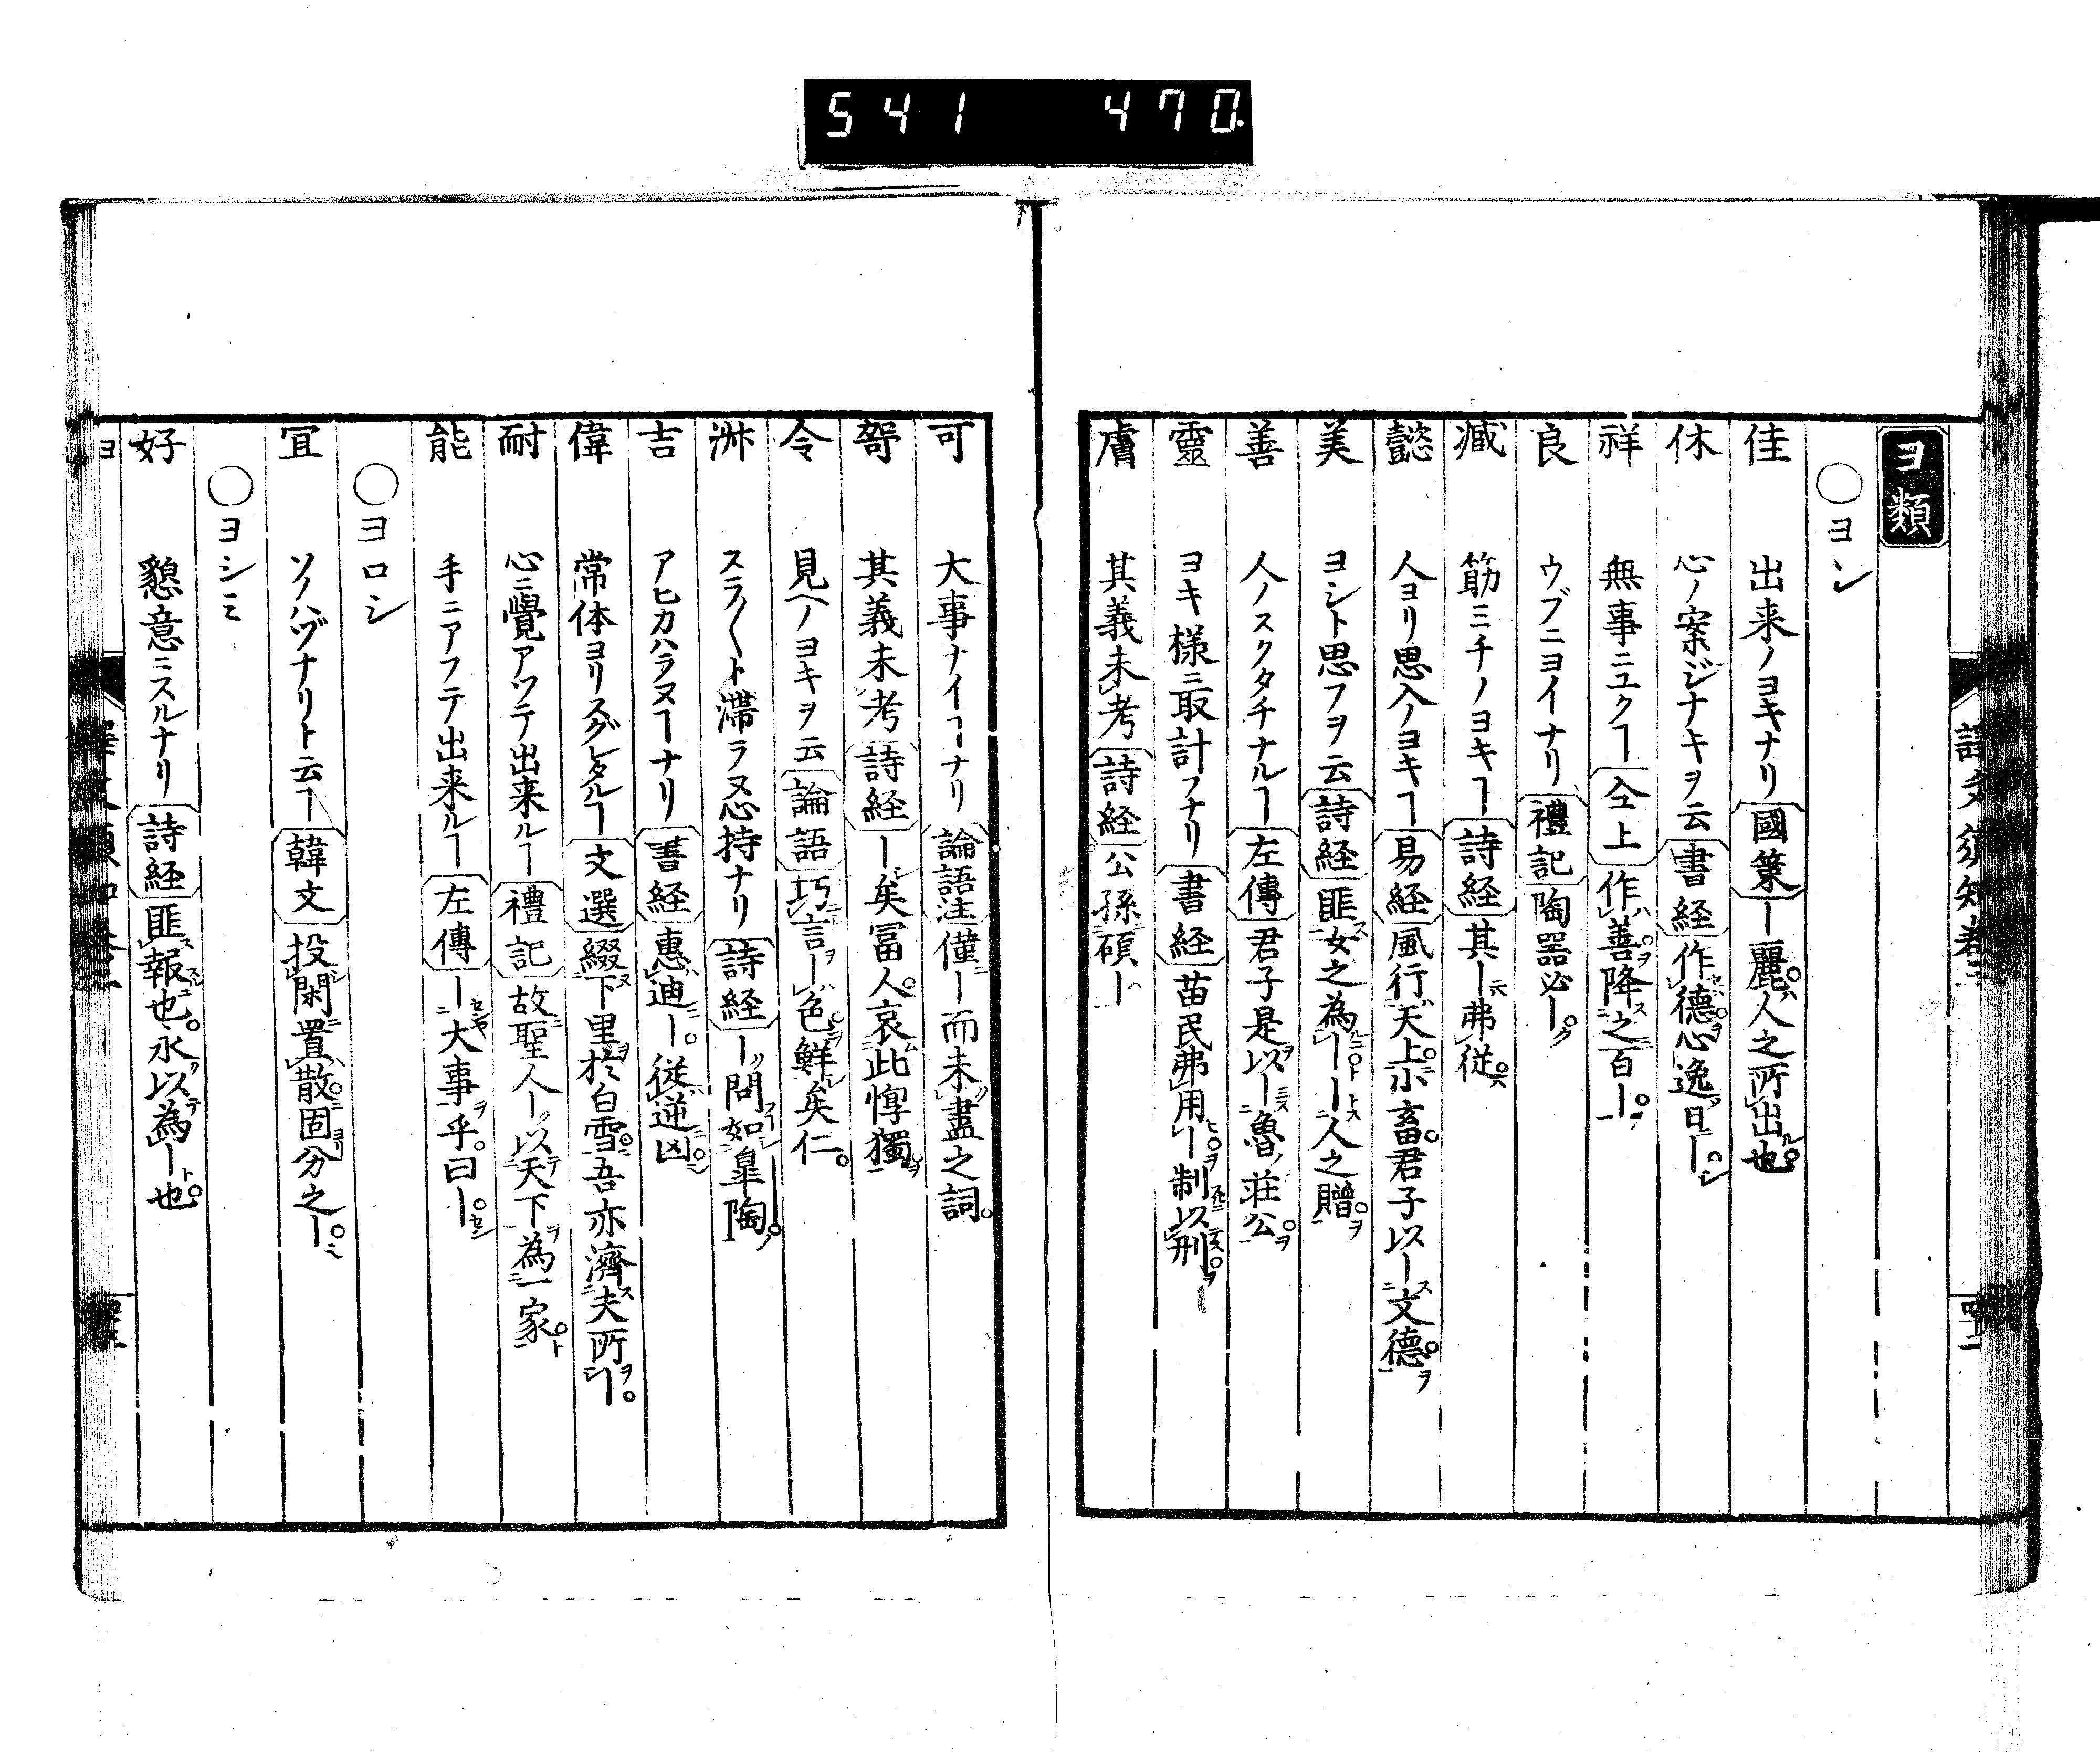 541 470
ヨ類
○ヨシ
佳 出来ノヨキナリ 國策 ー麗人之所出也
休 心ノ案ジナキヲ云 書経 作德心逸日ー
祥 無事ニユクヿ 仝上 作善降之百ー
良 ウブニヨイナリ 禮記 陶器必ー
臧 筋ミチノヨキヿ 詩経 其ー弗從
懿 人ヨリ思入ノヨキヿ 易経 風行天上小畜君子以ー文德
美 ヨシト思フヲ云 詩経 匪女之為ーー人之贈
善 人ノスクタチナルヿ 左傳 君子是以ー魯荘公
靈 ヨキ様ニ取計フナリ 書経 苗民弗用ー制以刑
膚 其義未考 詩経 公孫碩ー
可 大事ナイヿナリ 論語注 僅ー而未盡之詞
哿 其義未考 詩経 ー矣冨人哀此惸獨
令 見ヘノヨキヲ云 論語 巧言ー色鮮矣仁
淑 スラ〱ト滞ラヌ心持ナリ 詩経 ー問如皐陶
吉 アヒカハラヌヿナリ 書経 惠迪ー從逆凶
偉 常体ヨリスグレタルヿ 文選 綴下里於白雪吾亦濟夫所ー
耐 心ニ覺アツテ出来ルヿ 禮記 故聖人ー以天下為一家
能 手ニアフテ出来ルヿ 左傳 ー大事乎曰ー
○ヨロシ
宜 ソノハヅナリト云ヿ 韓文 投閑置散固分之ー
○ヨシミ
好 懇意ニスルナリ 詩経 匪報也永以為ー也
ヨ